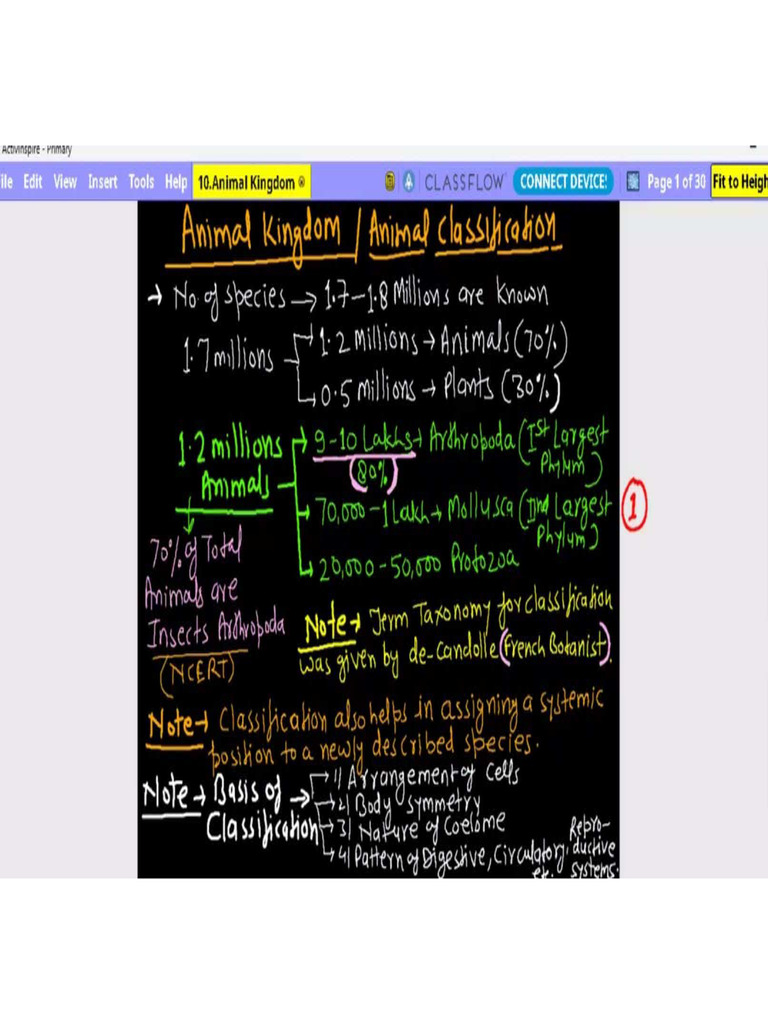 ActivInspire - Primary
ile Edit View Insert Tools Help 10.Animal Kingdom ® CLASSFLOW CONNECT DEVICE! Page 1 of 30 Fit to Heigh
Animal Kingdom / Animal Classification
→ No. of species → 1.7-1.8 Millions are known
1.7 millions
1.2 millions → Animals (70%)
0.5 millions → Plants (30%)
1.2 millions
Animals
9-10 Lakhs → Arthropoda (Ist Largest
Phylum)
(80%)
70,000-1 Lakh → Mollusca (IInd Largest
Phylum)
1
20,000-50,000 Protozoa
70% of Total
Animals are
Insects Arthropoda
(NCERT)
Note → Term Taxonomy for classification
was given by de-candolle (French Botanist).
Note → Classification also helps in assigning a systemic
position to a newly described species.
Note → Basis of →
Classification
1) Arrangement of Cells
2) Body symmetry
3) Nature of Coelome
4) Pattern of Digestive, Circulatory, Repro-
ductive
etc. systems.